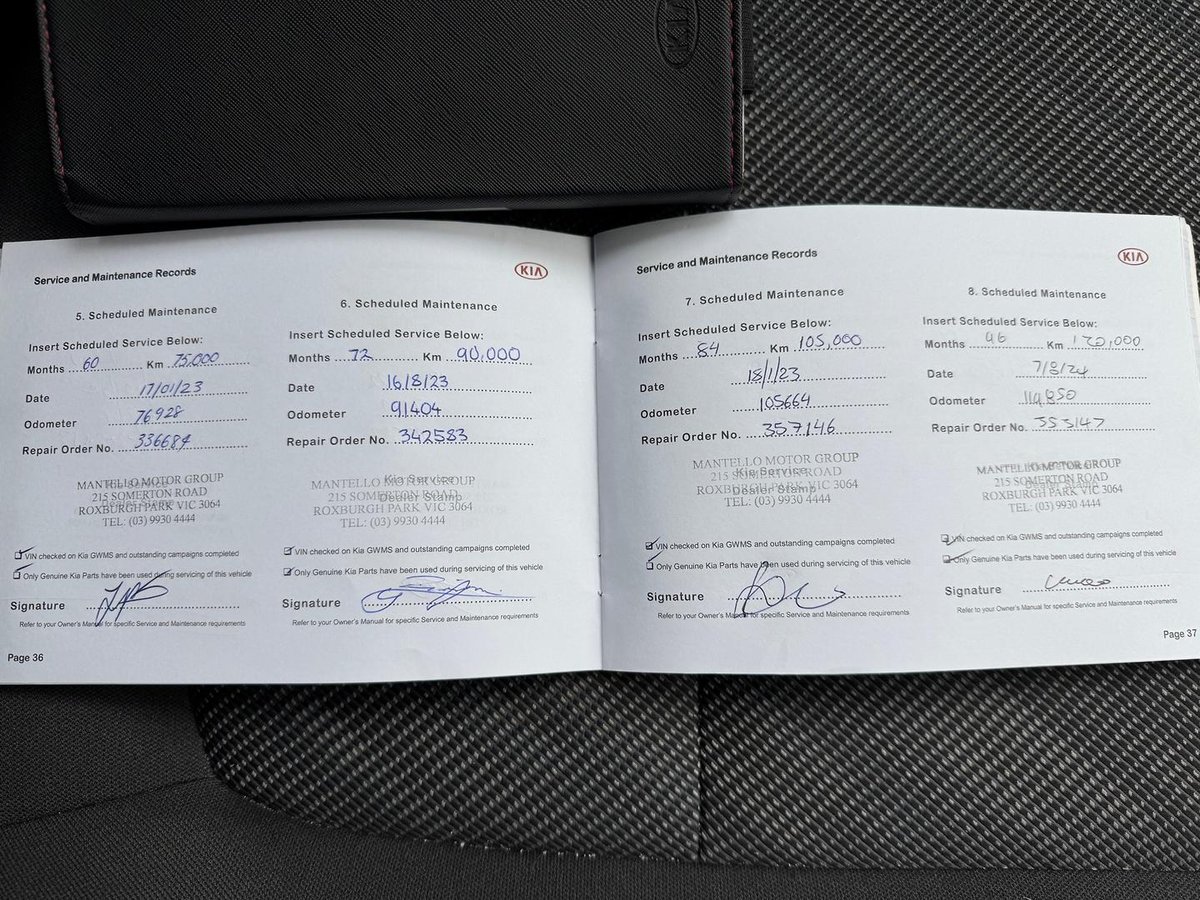 KIA
Service and Maintenance Records
KIA
5. Scheduled Maintenance
Insert Scheduled Service Below:
Months 60 Km 75,000
Date 17/01/23
Odometer 76928
Repair Order No. 336684
MANTELLO MOTOR GROUP
215 SOMERTON ROAD
ROXBURGH PARK VIC 3064
TEL: (03) 9930 4444
VIN checked on Kia GWMS and outstanding campaigns completed
Only Genuine Kia Parts have been used during servicing of this vehicle
Signature
Refer to your Owner's Manual for specific Service and Maintenance requirements
Page 36
6. Scheduled Maintenance
Insert Scheduled Service Below:
Months 72 Km 90,000
Date 16/8/23
Odometer 91404
Repair Order No. 342583
Kia Service
Dealer Stamp
MANTELLO MOTOR GROUP
215 SOMERTON ROAD
ROXBURGH PARK VIC 3064
TEL: (03) 9930 4444
VIN checked on Kia GWMS and outstanding campaigns completed
Only Genuine Kia Parts have been used during servicing of this vehicle
Signature
Refer to your Owner's Manual for specific Service and Maintenance requirements
Service and Maintenance Records
KIA
7. Scheduled Maintenance
Insert Scheduled Service Below:
Months 84 Km 105,000
Date 18/1/23
Odometer 105664
Repair Order No. 357146
Kia Service
Dealer Stamp
MANTELLO MOTOR GROUP
215 SOMERTON ROAD
ROXBURGH PARK VIC 3064
TEL: (03) 9930 4444
VIN checked on Kia GWMS and outstanding campaigns completed
Only Genuine Kia Parts have been used during servicing of this vehicle
Signature
Refer to your Owner's Manual for specific Service and Maintenance requirements
8. Scheduled Maintenance
Insert Scheduled Service Below:
Months 96 Km 120,000
Date 7/8/24
Odometer 119,850
Repair Order No.
MANTELLO MOTOR GROUP
215 SOMERTON ROAD
ROXBURGH PARK VIC 3064
TEL: (03) 9930 4444
VIN checked on Kia GWMS and outstanding campaigns completed
Only Genuine Kia Parts have been used during servicing of this vehicle
Signature
Refer to your Owner's Manual for specific Service and Maintenance requirements
Page 37